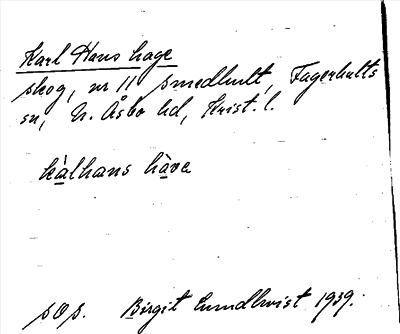 Karl Hans hage
skog, nr 11 Smedhult, Fagerhults
sn, N. Åsbo hd, Krist. l.
kàlhans hàva
sOs. Birgit Lundkvist 1939.